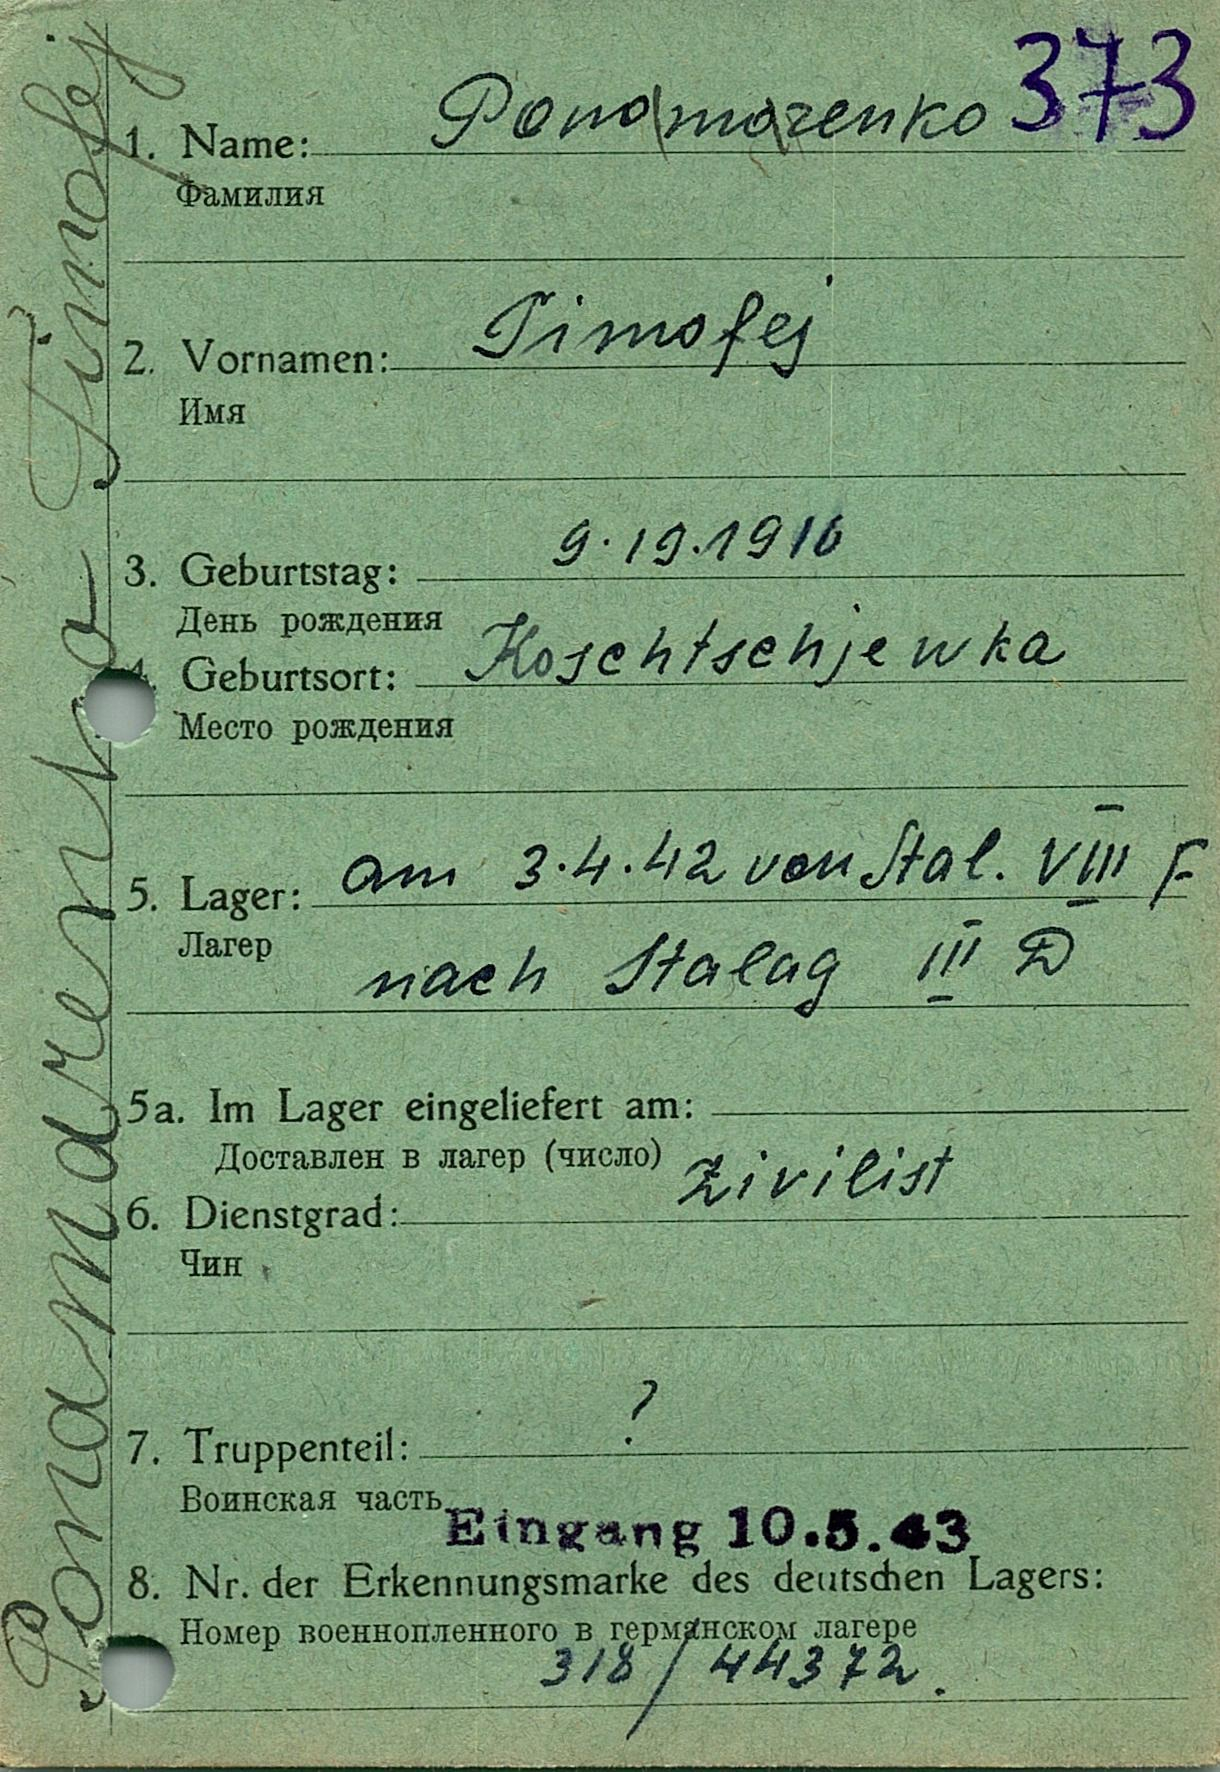 Ponamarenko Timofej
373
1. Name: Ponomarenko
Фамилия
2. Vornamen: Timofej
Имя
3. Geburtstag: 9.19.1916
День рождения
4. Geburtsort: Koschtschjewka
Место рождения
5. Lager: am 3.4.42 von Stal. VIII F
Лагер
nach Stalag III D
5a. Im Lager eingeliefert am:
Доставлен в лагер (число)
6. Dienstgrad: Zivilist
Чин
7. Truppenteil: ?
Воинская часть
Eingang 10.5.43
8. Nr. der Erkennungsmarke des deutschen Lagers:
Номер военнопленного в германском лагере
318/44372.